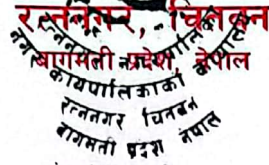 रत्ननगर, चितवन
बागमती प्रदेश, नेपाल
नगर कार्यपालिकाको कार्यालय
रत्ननगर चितवन
बागमती प्रदेश नेपाल